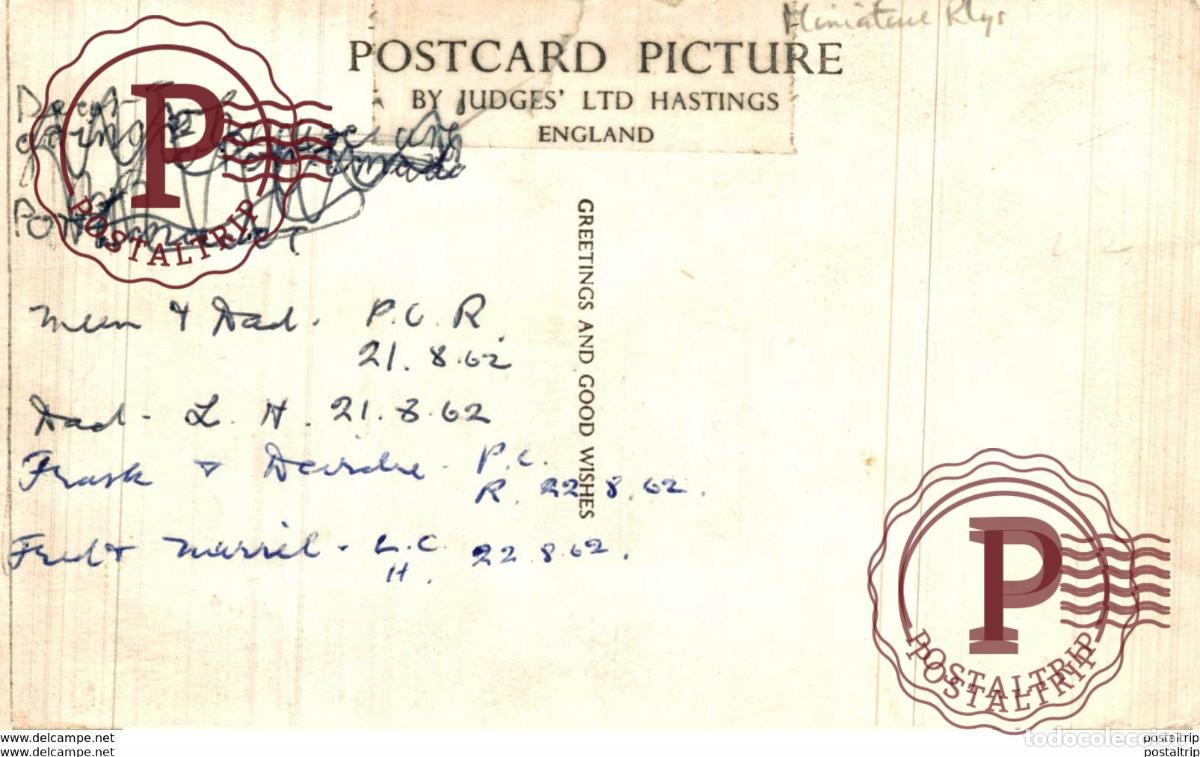 Miniature Rlys
POSTCARD PICTURE
BY JUDGES' LTD HASTINGS
ENGLAND
GREETINGS AND GOOD WISHES
Mum & Dad. P.C. R
21. 8.62
Dad - L. H. 21.8.62
Frank & Deirdre - P.C.
R. 22.8.62.
Fred & - L.C. 22.8.62.
H.
P
POSTALTRIP
P
POSTALTRIP
POSTALTRIP
todocoleccion
www.delcampe.net
postaltrip
www.delcampe.net
postaltrip